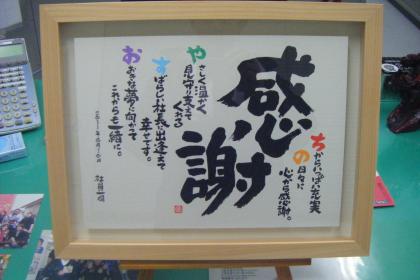 感謝
ちからいっぱい充実
の日々に
心から感謝。
やさしく温かく
見守り支えて
くれる
すばらしい社長に出逢えて
幸せです。
おおきな夢に向かって
これからも一緒に。
社員一同